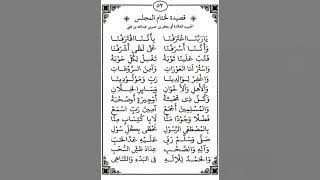 ٥٢
قصيدة لختام المجلس
يَا رَبَّنَا اعْتَرَفْنَا بِأَنَّنَا اقْتَرَفْنَا
وَأَنَّنَا أَسْرَفْنَا عَلَى لَظَى أَشْرَفْنَا
فَتُبْ عَلَيْنَا تَوْبَةْ تَغْسِلْ لِكُلِّ حَوْبَةْ
وَاسْتُرْ لَنَا الْعَوْرَاتِ وَآمِنِ الرَّوْعَاتِ
وَاغْفِرْ لِوَالِدِينَا رَبِّ وَمَوْلُودِينَا
وَالْأَهْلِ وَالْإِخْوَانِ وَسَائِرِ الْخِلَّانِ
وَكُلِّ ذِي مَحَبَّةْ أَوْ جِيرَةٍ أَوْ صُحْبَةْ
وَالْمُسْلِمِينَ أَجْمَعْ آمِينَ رَبِّ اسْمَعْ
فَضْلًا وَجُودًا مَنَّا لَا بِاكْتِسَابٍ مِنَّا
بِالْمُصْطَفَى الرَّسُولِ نَحْظَى بِكُلِّ سُولِ
صَلَّى وَسَلَّمْ رَبِّي عَلَيْهِ عَدَّ الْحَبِّ
وَآلِهِ وَالصَّحْبِ عِدَادَ طَشِّ السُّحْبِ
وَالْحَمْدُ لِلْإِلَهِ فِي الْبَدْءِ وَالتَّنَاهِي